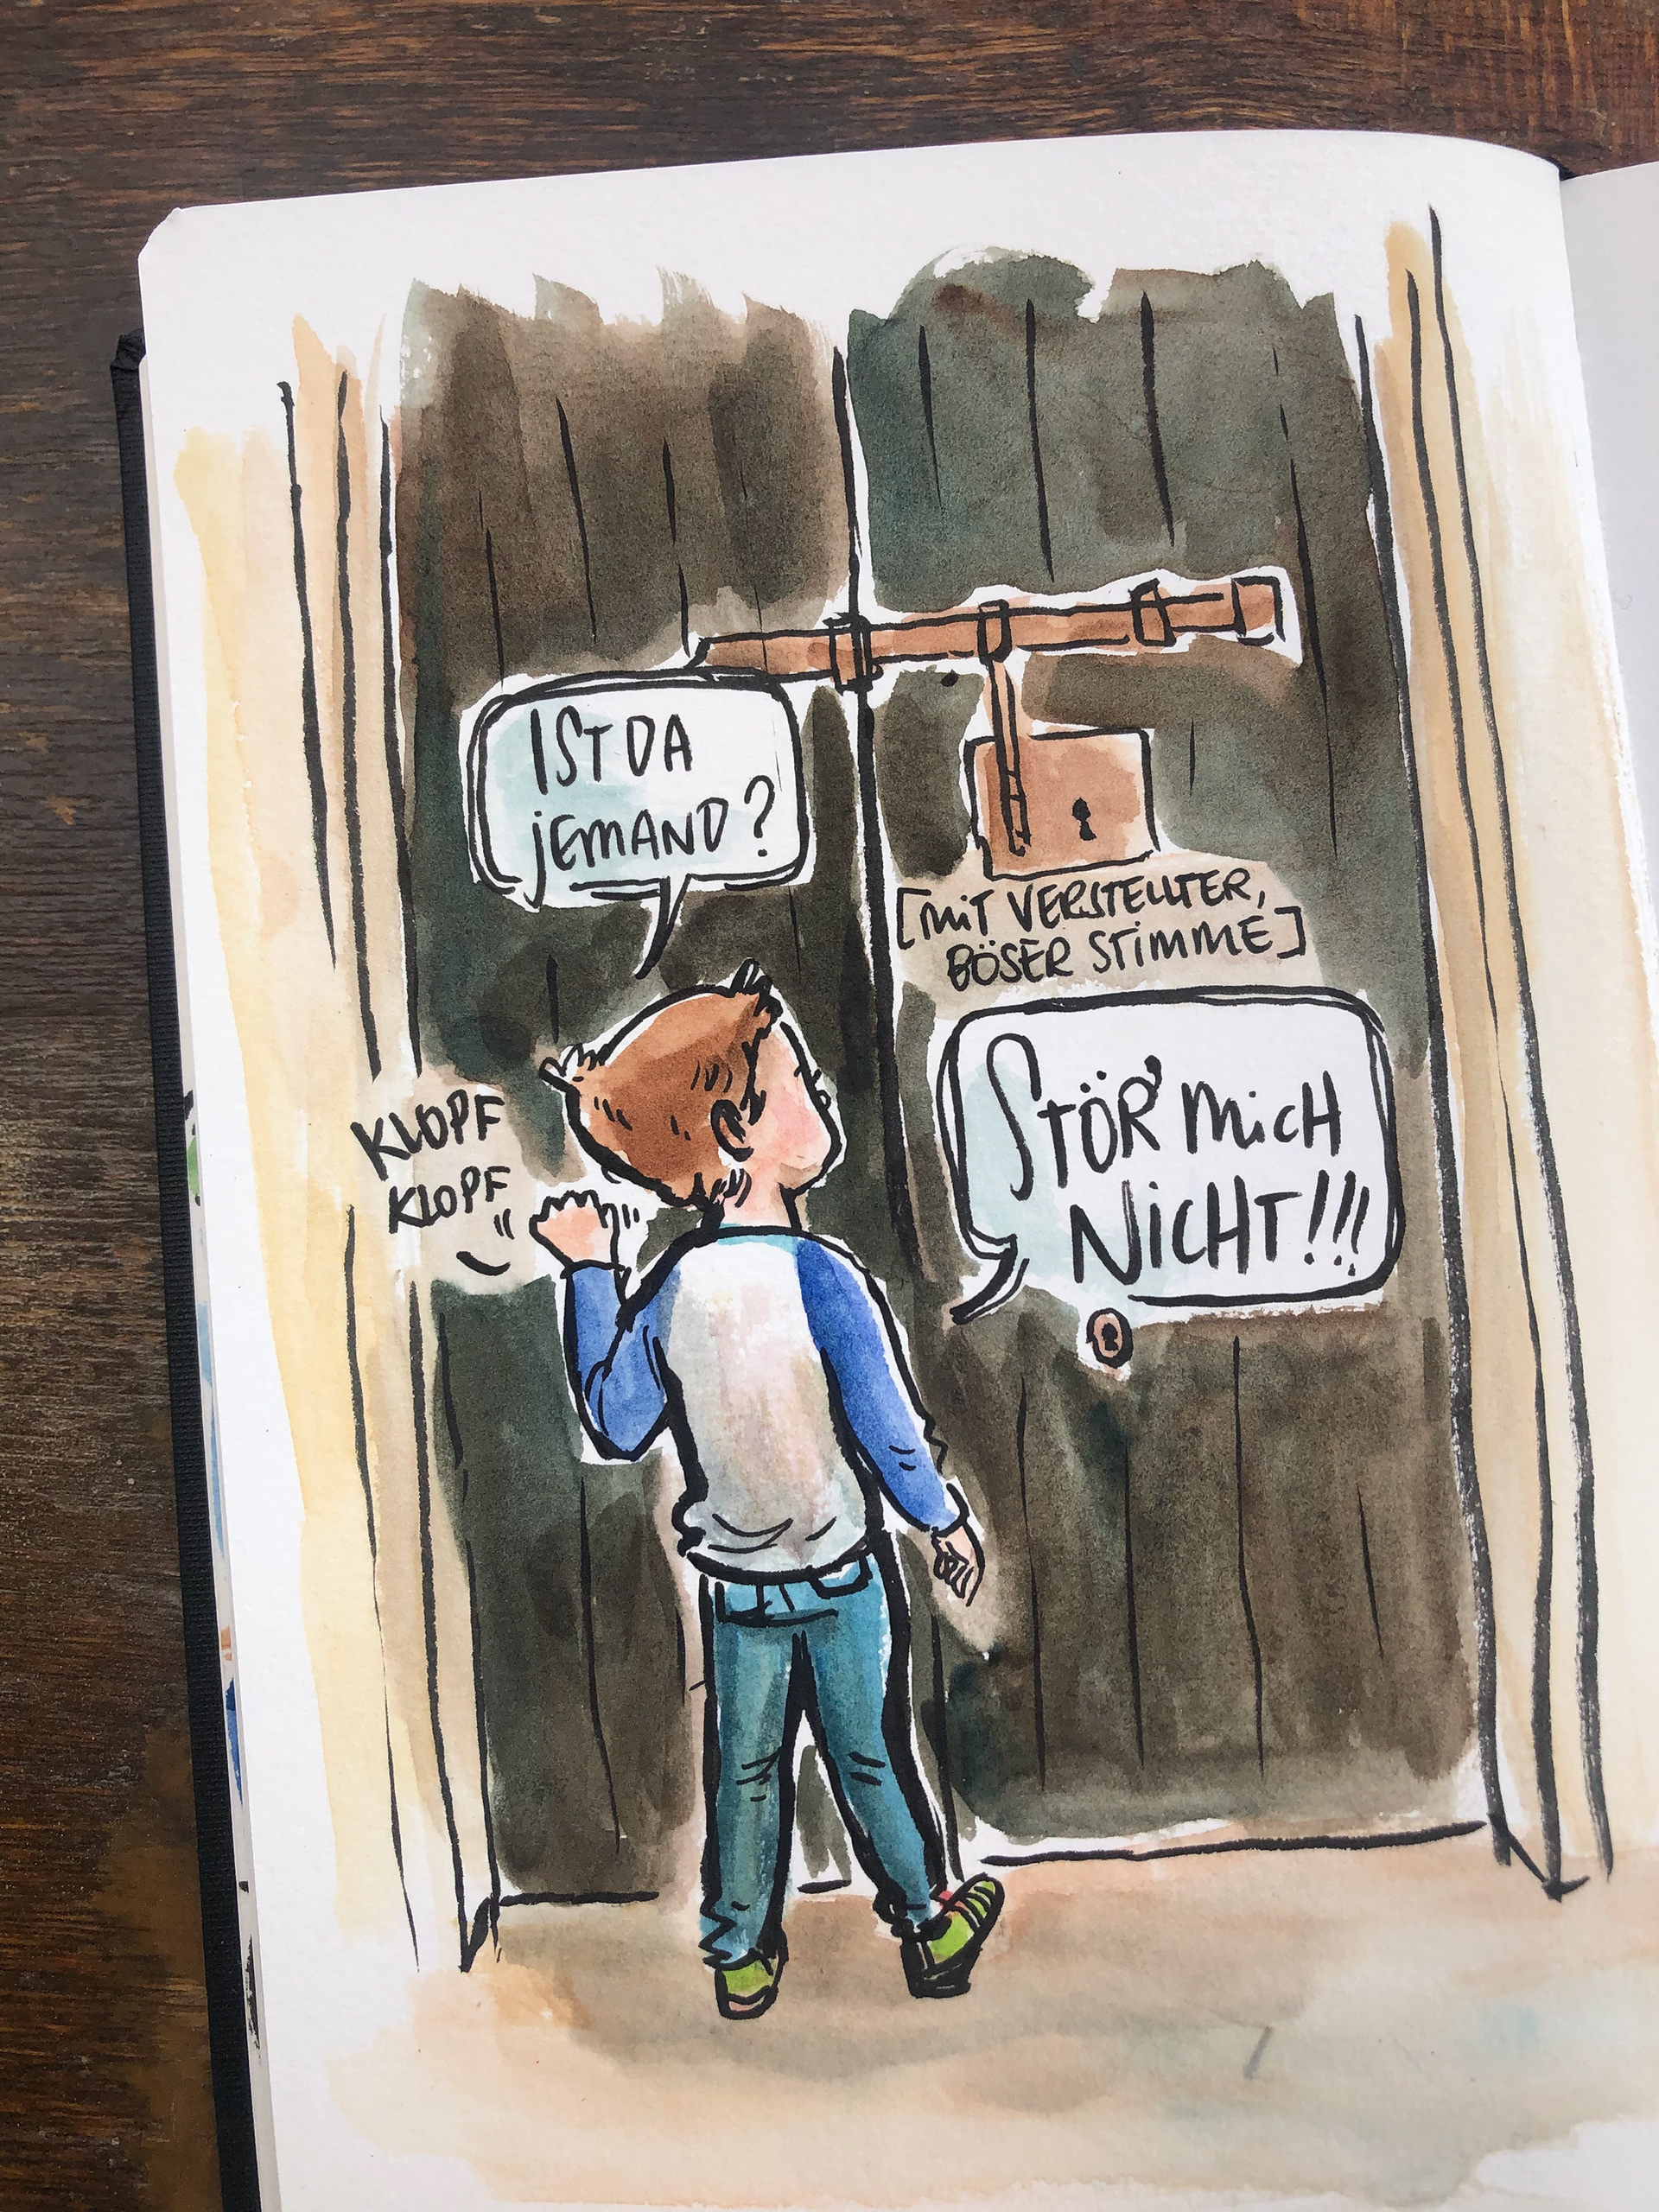 IST DA
JEMAND?
[MIT VERSTELLTER,
BÖSER STIMME]
KLOPF
KLOPF
STÖR' MICH
NICHT!!!